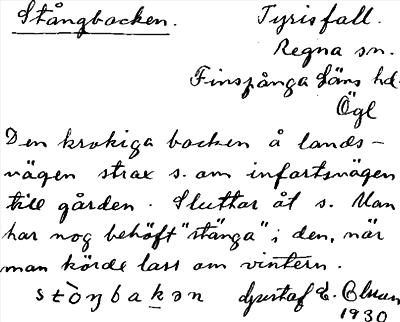 Stångbacken. Tyrisfall.
Regna sn.
Finspånga läns hd
Ögl
Den krokiga backen å lands-
vägen strax s. om infartsvägen
till gården. Sluttar åt s. Man
har nog behöft "stänga" i den, när
man körde lass om vintern.
stòŋbakən Gustaf E. Olsson
1930